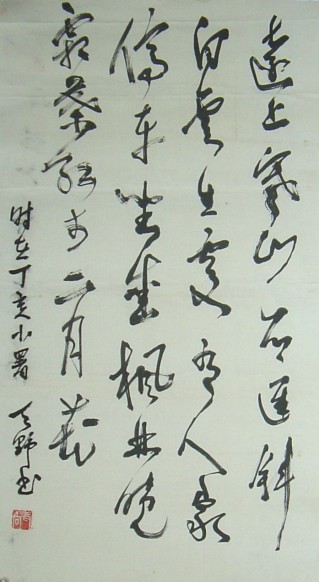 遠上寒山石逕斜
白雲生處有人家
停车坐愛楓林晚
霜葉紅於二月花
时在丁亥小暑 天野书